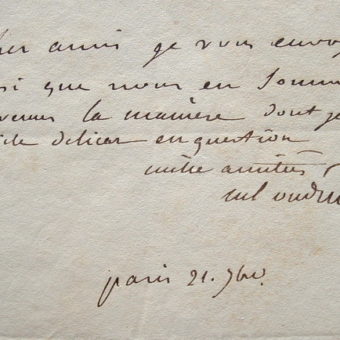 her amis je vous envoy
si que nous en somme
venus la manière dont je
en question
mille amitiés
paris 21. 9bre.